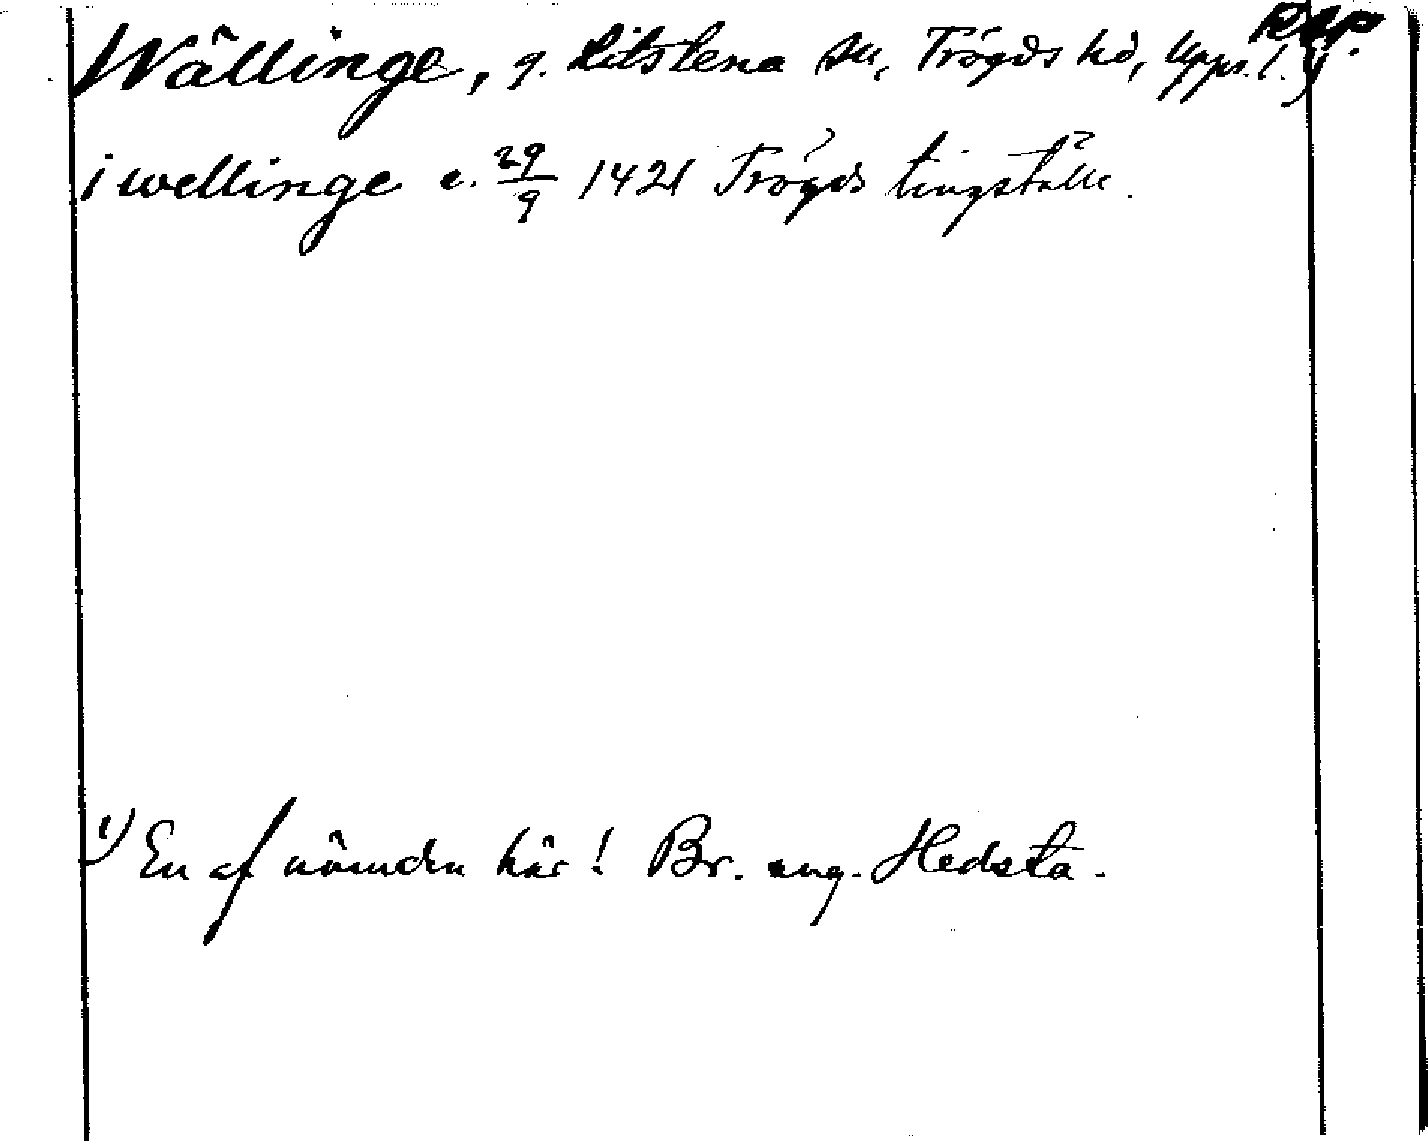 Wällinge, g. Litslena sn, Trögds hd, Upps. l. 1) RAp.
i wellinge c. 29/9 1421 Trögds tingställe.
1) En af nämden här! Br. ang. Hedsta.